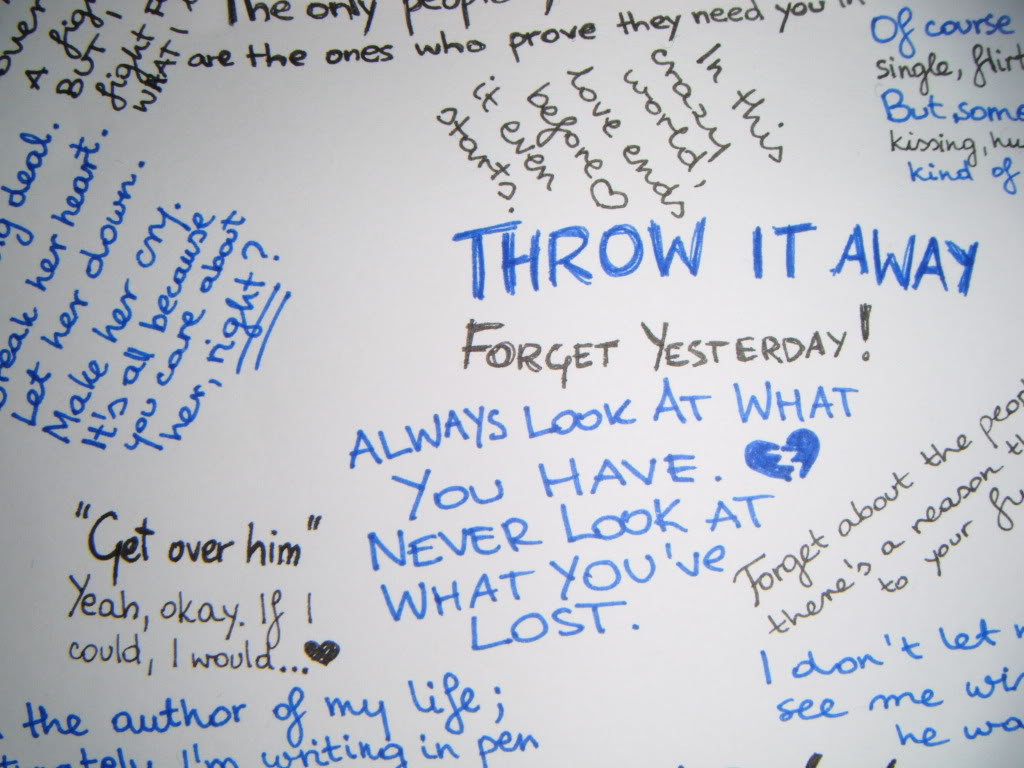 The only people
are the ones who prove they need you in
over
A fig
But
fight
WHAT I
Of course
single, flirt
But, some
kissing, hu
kind of
In this
crazy
world,
love ends
before
it even
starts.
ng deal.
reak her heart.
Let her down.
Make her cry.
It's all because
you care about
her, right?
THROW IT AWAY
FORGET YESTERDAY!
ALWAYS LOOK AT WHAT
YOU HAVE.
NEVER LOOK AT
WHAT YOU'VE
LOST.
"Get over him"
Yeah, okay. If I
could, I would...
Forget about the peop
there's a reason th
to your fu
I don't let
see me win
he wa
the author of my life;
tunately I'm writing in pen